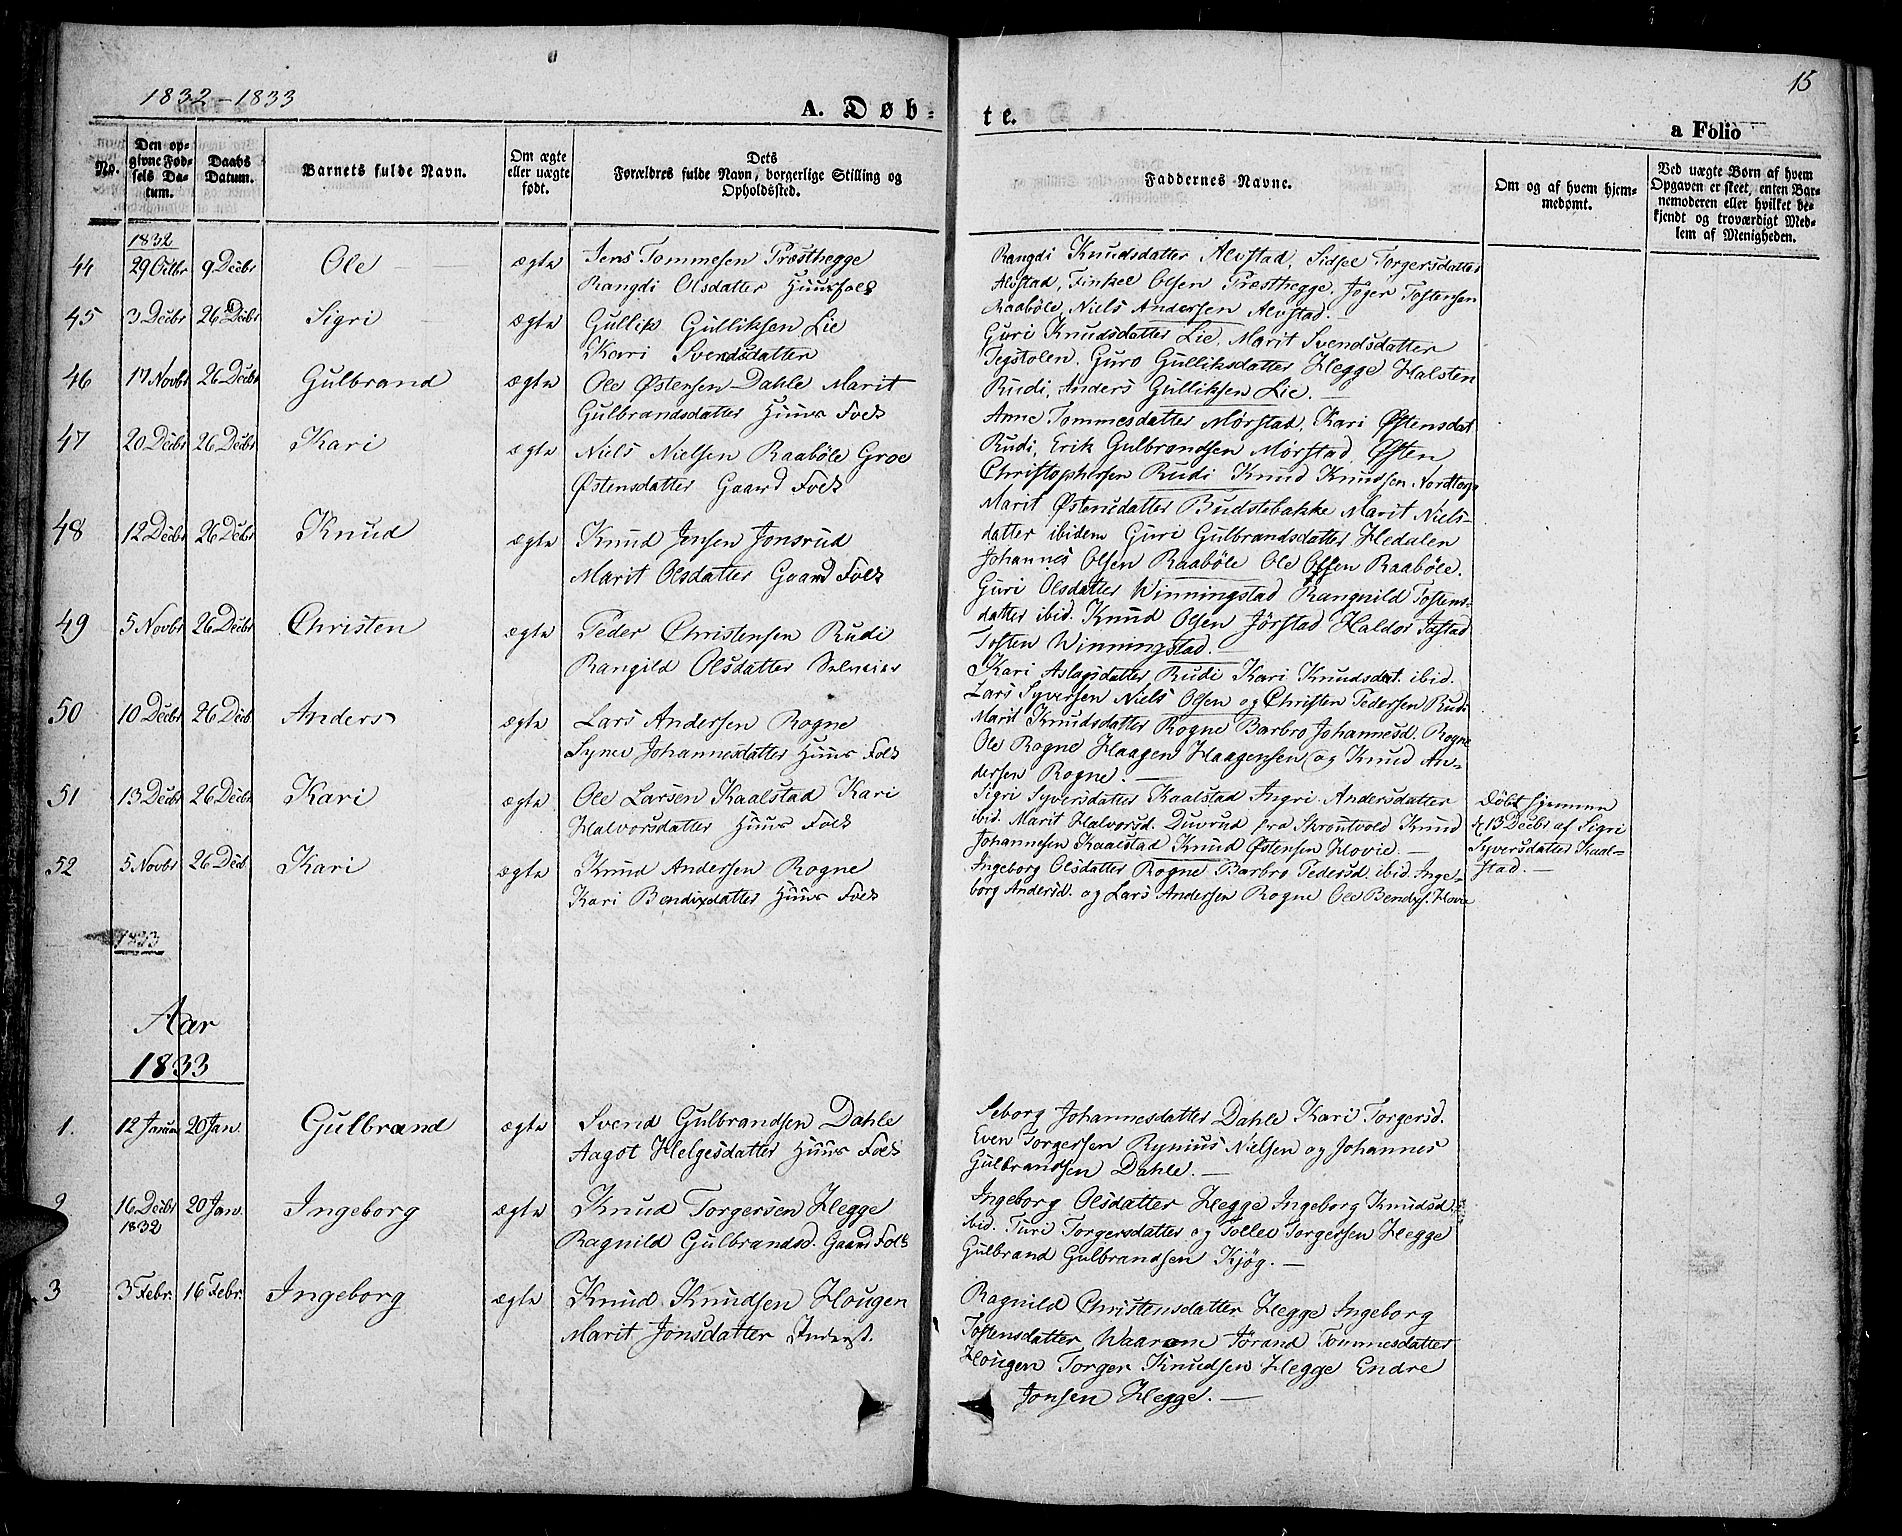 1832-1833
15
A. Døb-
te.
a Folio
No.
Den op-
givne Fød-
sels Da-
tum.
Daabs
Datum.
Barnets fulde Navn.
Om ægte
eller uægte
født.
Dets
Forældres fulde Navn, borgerlige Stilling og
Opholdssted.
Faddernes Navne.
Om og af hvem hjem-
medømt.
Ved uægte Børn af hvem
Opgaven er skeet, enten Bar-
nemoderen eller hvilket be-
kjendt og troværdigt Med-
lem af Menigheden.
1832
44 29 Octbr 9 Decbr Ole ægte Jens Tommesen Præsthegge
Rangdi Olsdatter Huusfolk
Rangdi Knudsdatter Alvstad, Sidsel Torgersdatter
Alvstad, Finkel Olsen Præsthegge, Jøger Tostensen
Raabøle, Niels Andersen Alvstad.
45 3 Decbr 26 Decbr Sigri ægte Gullik Gulliksen Lie
Kari Svendsdatter
Guri Knudsdatter Lie, Marit Svendsdatter
Tegstolen, Guro Gulliksdatter Hegge Halsten
Rudi, Anders Gulliksen Lie. —
46 17 Novbr 26 Decbr Gulbrand ægte Ole Østensen Dahle Marit
Gulbrandsdatter Huus Folk
Anne Tommesdatter Mørstad, Kari Østensdat
Rudi, Erik Gulbrandsen Mørstad, Østen
Christophersen Rudi Knud Knudsen Nordtorp
47 20 Decbr 26 Decbr Kari ægte Niels Nielsen Raabøle Groe
Østensdatter Gaard Folk
Marit Østensdatter Budstebakke Marit Niels-
datter ibidem Guri Gulbrandsdatter Hedalen
Johannes Olsen Raabøle Ole Olsen Raabøle.
48 12 Decbr 26 Decbr Knud ægte Knud Jensen Jonsrud
Marit Olsdatter Gaard Folk
Guri Olsdatter Winningstad Rangnild Tostens-
datter ibid. Knud Olsen Jørstad Haldor Jøstad
Tosten Winningstad.
49 5 Novbr 26 Decbr Christen ægte Peder Christensen Rudi
Rangild Olsdatter Selveier
Kari Aslagsdatter Rudi Kari Knudsdat. ibid.
Lars Syversen Niels Olsen og Christen Pedersen Rudi
50 10 Decbr 26 Decb. Anders ægte Lars Andersen Rogne
Synev Johannesdatter Huus Folk
Marit Knudsdatter Rogne Barbro Johannesd. Rogne
Ole Rogne Haagen Haagensen og Knud An-
dersen Rogne. —
51 13 Decbr 26 Decbr Kari ægte Ole Larsen Kaalstad Kari
Halvorsdatter Huus Folk
Sigri Syversdatter Kaalstad Ingri Andersdatter
ibid. Marit Halvorsd. Duvrud fra Skroutvold Knud
Johannesen Kaalstad Knud Østensen Hovie. —
Døbt hjemme
d 13 Decbr af Sigri
Syversdatter Kaal-
stad. —
52 5 Novbr 26 Decb. Kari ægte Knud Andersen Rogne
Kari Bendixdatter Huus Folk
Ingeborg Olsdatter Rogne Barbro Pedersd. ibid. Inge-
borg Andersd. og Lars Andersen Rogne Ole Bendixs. Hovie
1833
Aar
1833
1. 12 Januar 20 Jan. Gulbrand ægte Svend Gulbrandsen Dahle
Aagot Helgesdatter Huus Folk
Seborg Johannesdatter Dahle Kari Torgersd.
Even Torgersen Rynius Nielsen og Johannes
Gulbrandsen Dahle. —
2 16 Decbr 1832 20 Jan. Ingeborg ægte Knud Torgersen Hegge
Ragnild Gulbrandsd. Gaard Folk
Ingeborg Olsdatter Hegge Ingeborg Knudsd.
ibid. Turi Torgersdatter og Tollev Torgersen Hegge
Gulbrand Gulbrandsen Kjøg. —
3 3 Febr. 16 Febr. Ingeborg ægte Knud Knudsen Hougen
Marit Jonsdatter Inderst.
Ragnild Christensdatter Hegge Ingeborg
Tostensdatter Waarom Jørand Tommesdatter
Hougen Torger Knudsen Hegge Endre
Jonsen Hegge. —